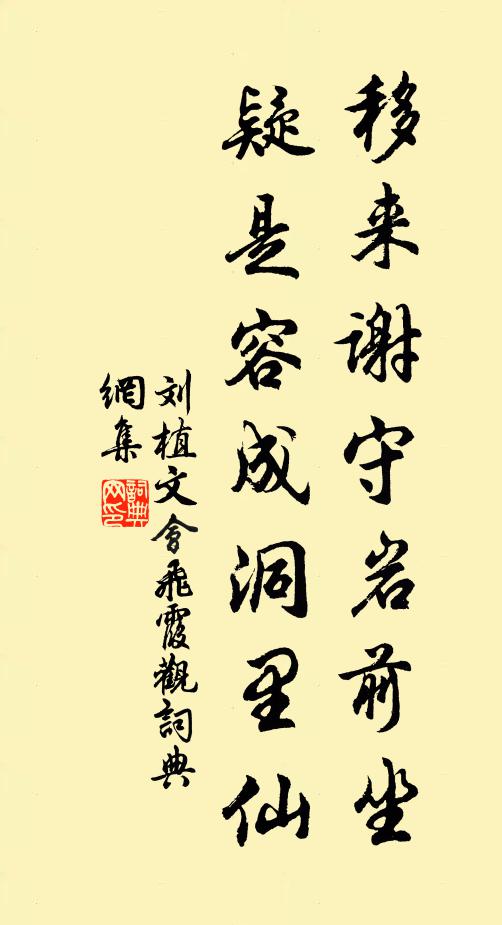 移来谢守岩前坐
疑是容成洞里仙
刘植文会飛霞觀詞典
網集
詞典
网印